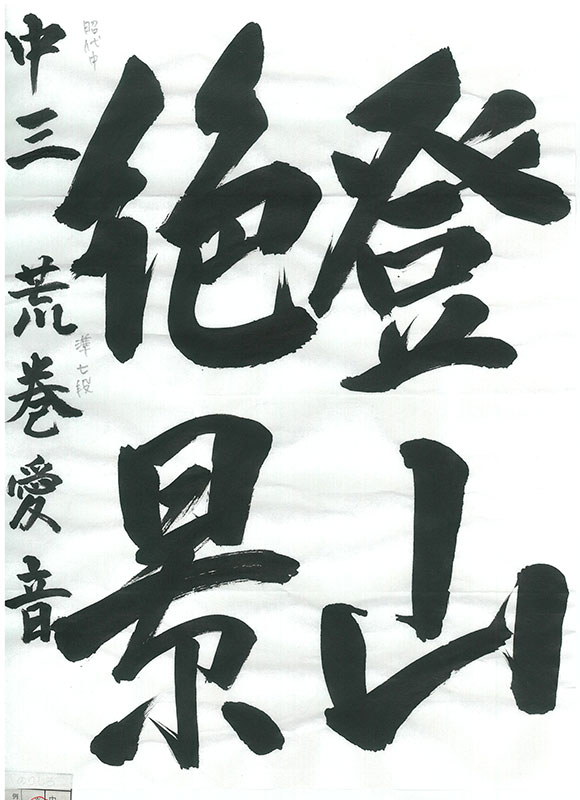 登山
絶景
中三 荒巻愛音
昭代中
準七段